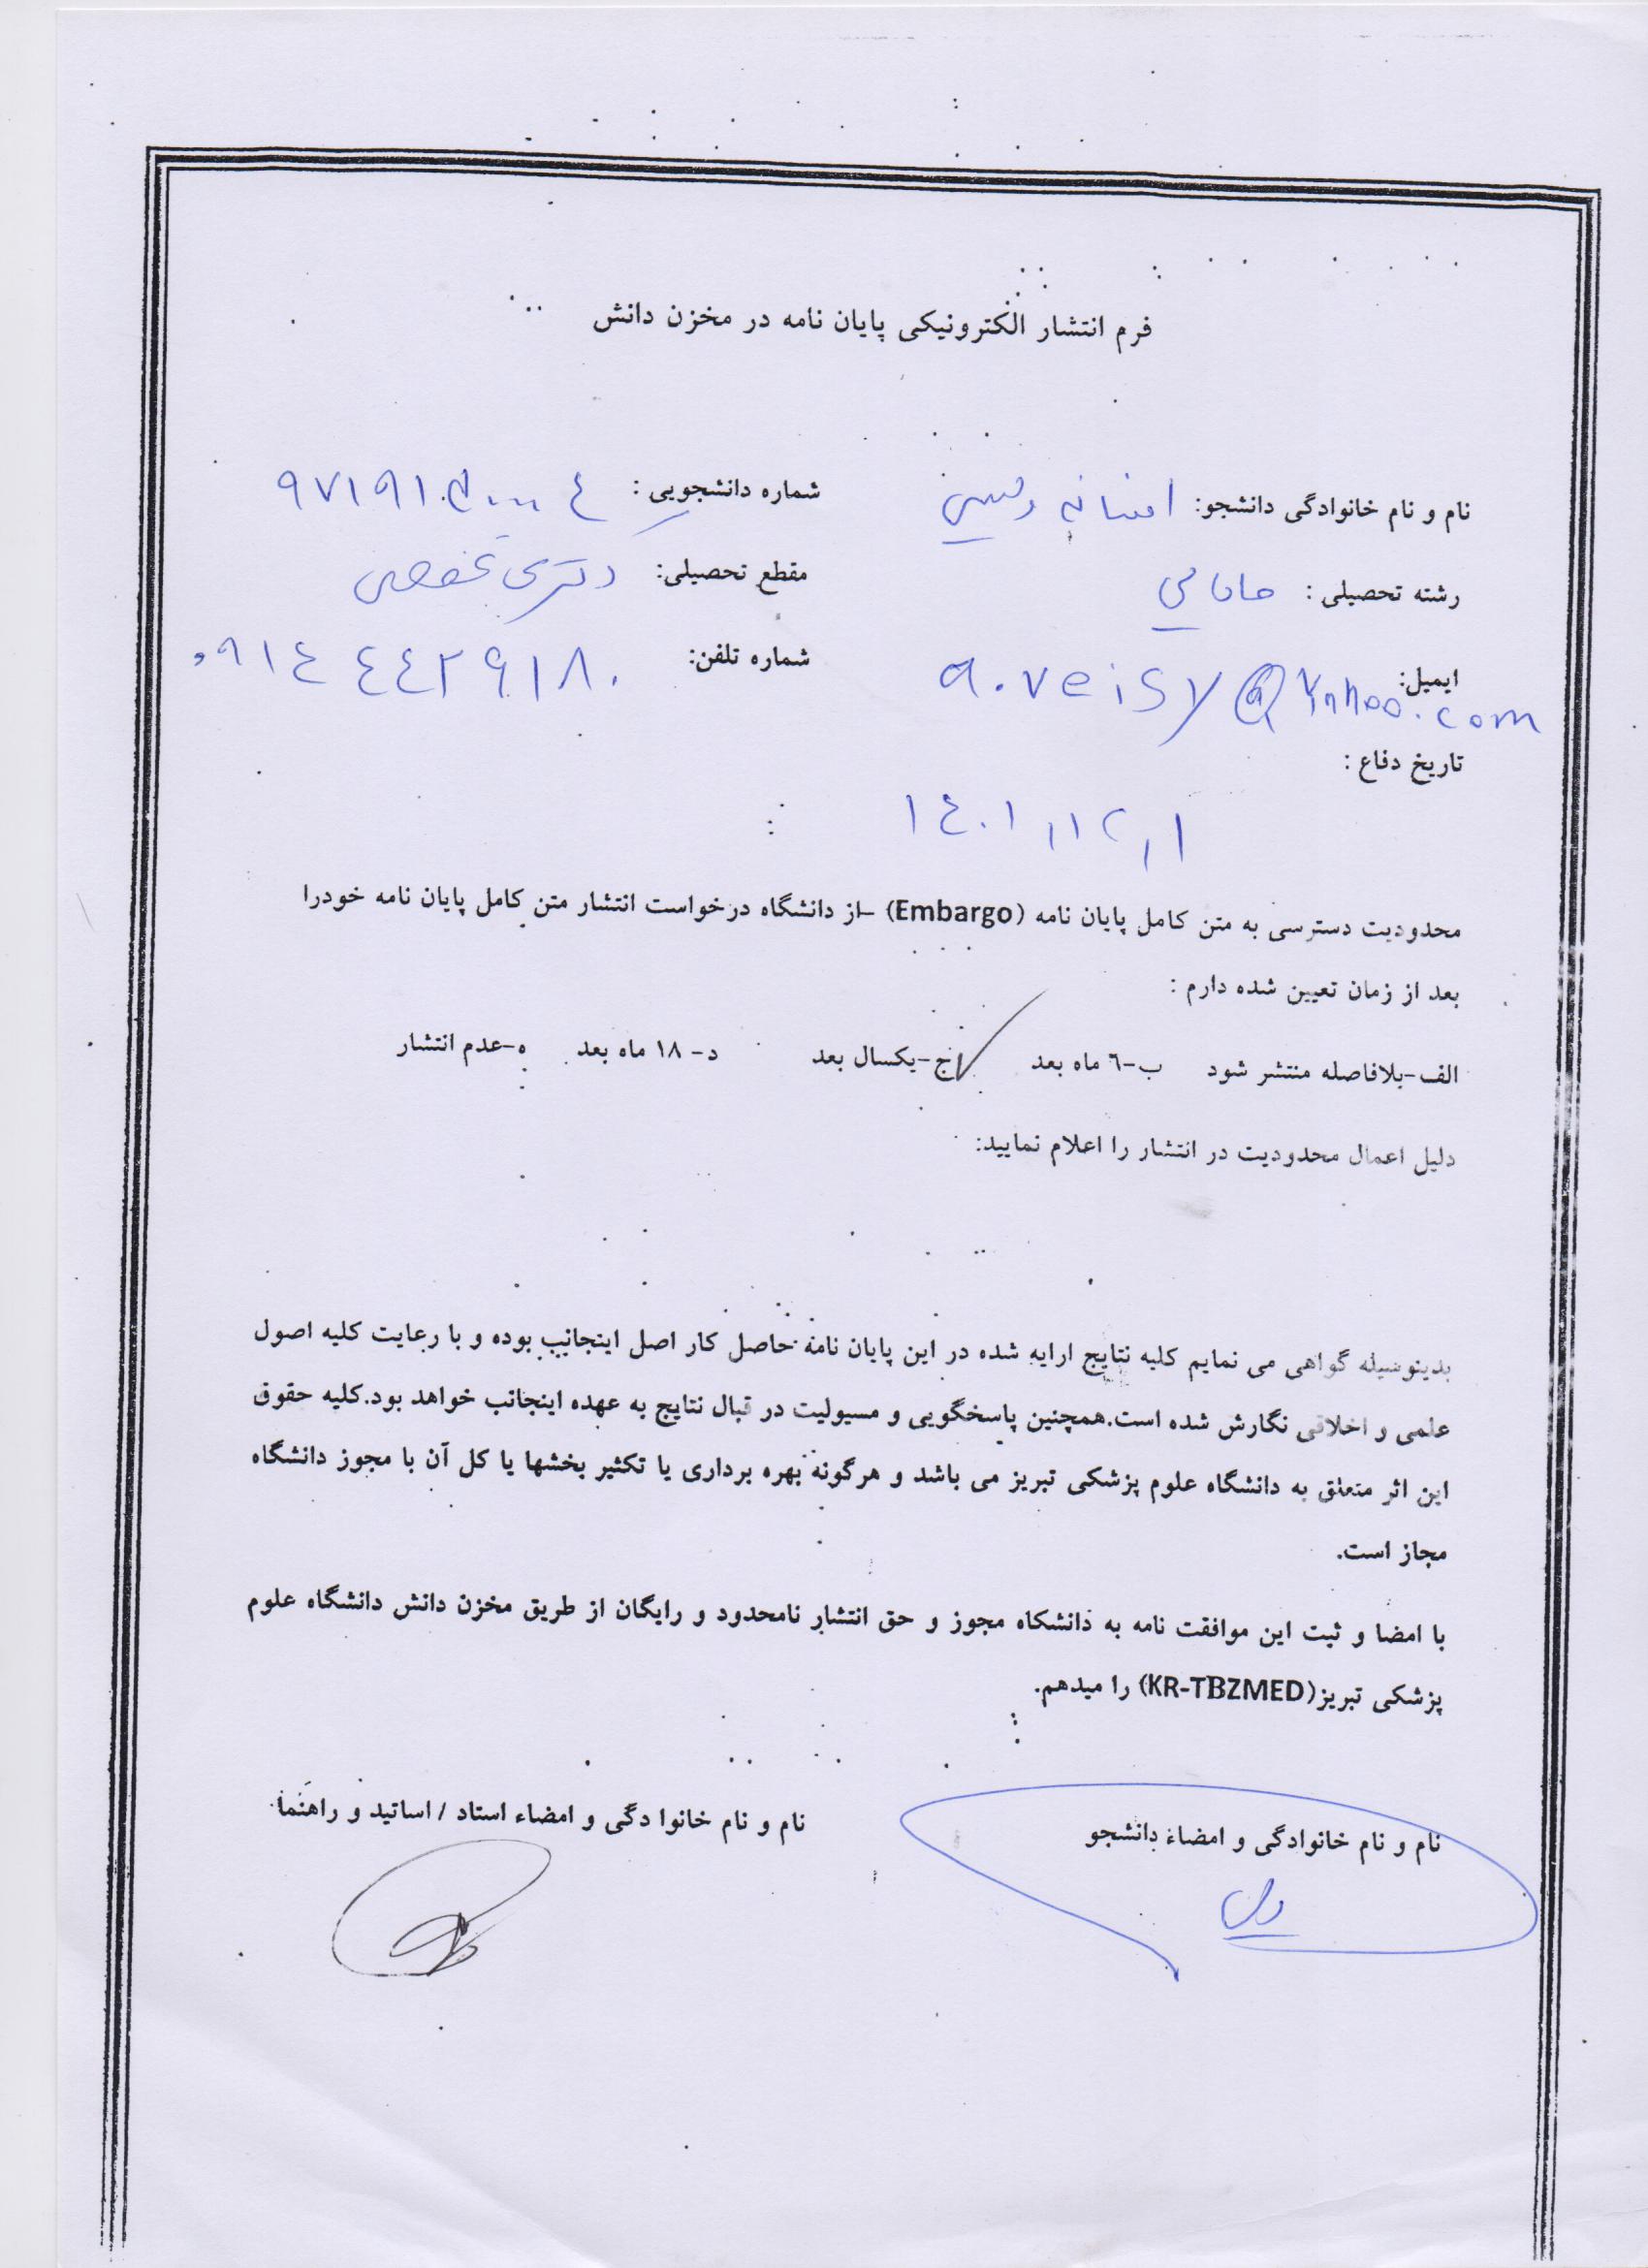 فرم انتشار الکترونیکی پایان نامه در مخزن دانش
نام و نام خانوادگی دانشجو: افسانه ویسی شماره دانشجویی :
رشته تحصیلی : مامایی مقطع تحصیلی: دکتری تخصصی
ایمیل: a.veisy@yahoo.com شماره تلفن: ۰۹۱٤٤٤۲۹۱۸۰
تاریخ دفاع :
۱٤۰۱,۱۲,۱
محدودیت دسترسی به متن کامل پایان نامه (Embargo) –از دانشگاه درخواست انتشار متن کامل پایان نامه خودرا
بعد از زمان تعیین شده دارم :
الف-بلافاصله منتشر شود ب-٦ ماه بعد ج-یکسال بعد د- ۱۸ ماه بعد ه-عدم انتشار
دلیل اعمال محدودیت در انتشار را اعلام نمایید:
بدینوسیله گواهی می نمایم کلیه نتایج ارایه شده در این پایان نامه حاصل کار اصل اینجانب بوده و با رعایت کلیه اصول
علمی و اخلاقی نگارش شده است.همچنین پاسخگویی و مسیولیت در قبال نتایج به عهده اینجانب خواهد بود.کلیه حقوق
این اثر متعلق به دانشگاه علوم پزشکی تبریز می باشد و هرگونه بهره برداری یا تکثیر بخشها یا کل آن با مجوز دانشگاه
مجاز است.
با امضا و ثبت این موافقت نامه به دانشکاه مجوز و حق انتشار نامحدود و رایگان از طریق مخزن دانش دانشگاه علوم
پزشکی تبریز(KR-TBZMED) را میدهم.
نام و نام خانوادگی و امضاء دانشجو نام و نام خانوا دگی و امضاء استاد / اساتید و راهنما